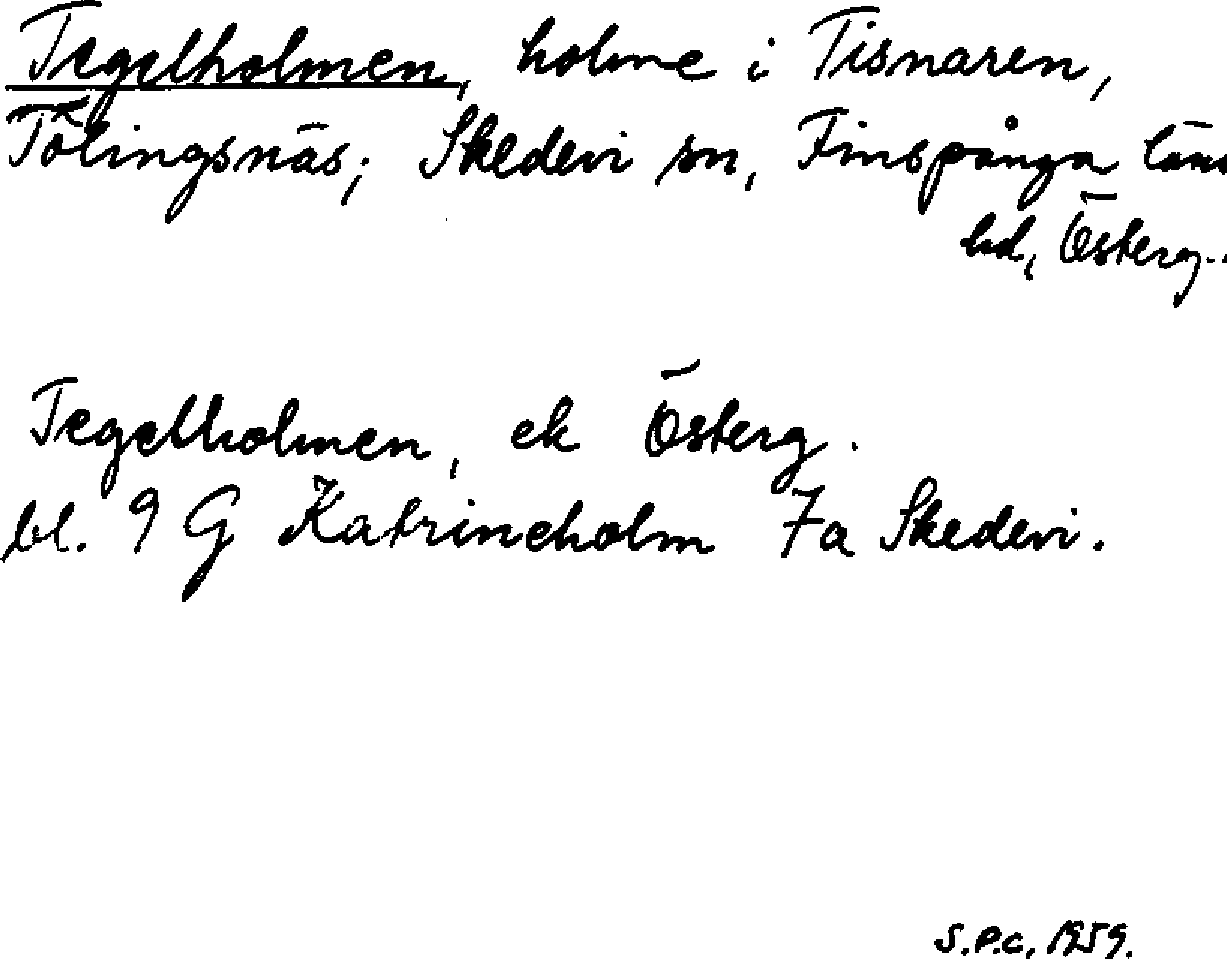 Tegelholmen, holme i Tisnaren,
Tölingsnäs; Skedevi sn, Finspånga läns
hd, Österg..
Tegelholmen, ek Österg.
bl. 9 G Katrineholm 7a Skedevi.
S.P.C, 1959.